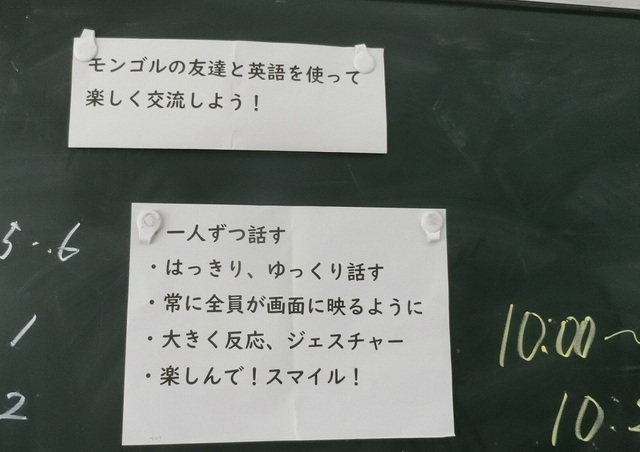 モンゴルの友達と英語を使って
楽しく交流しよう！
一人ずつ話す
・はっきり、ゆっくり話す
・常に全員が画面に映るように
・大きく反応、ジェスチャー
・楽しんで！スマイル！
5..6
1
2
10:00～
10: